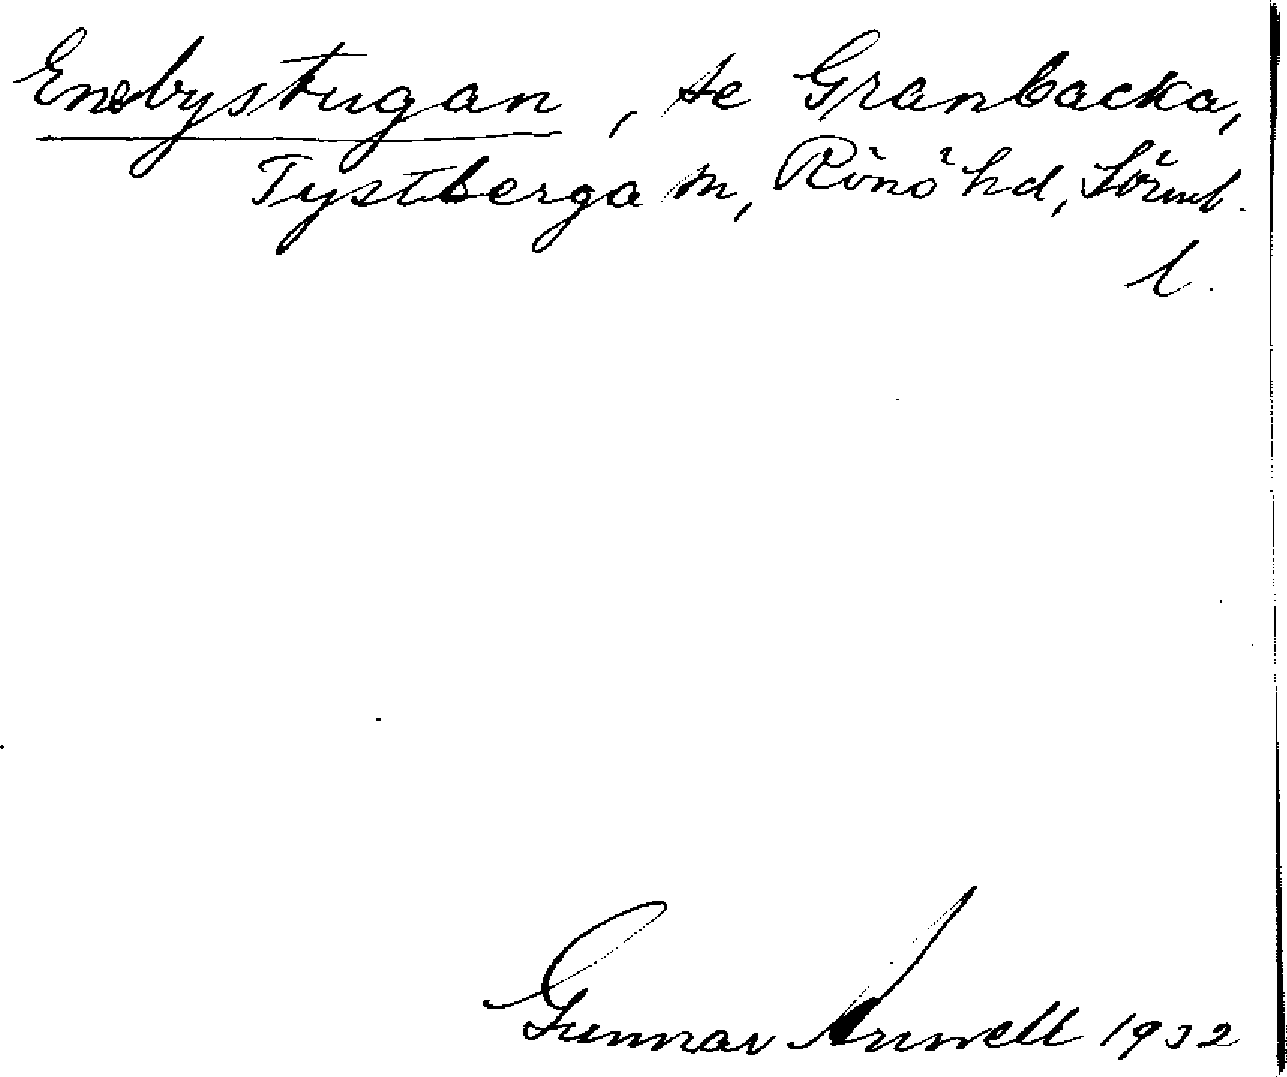 Enebystugan, se Granbacka,
Tystberga sn, Rönö hd, Sörml.
l.
Gunnar Arnwell 1932